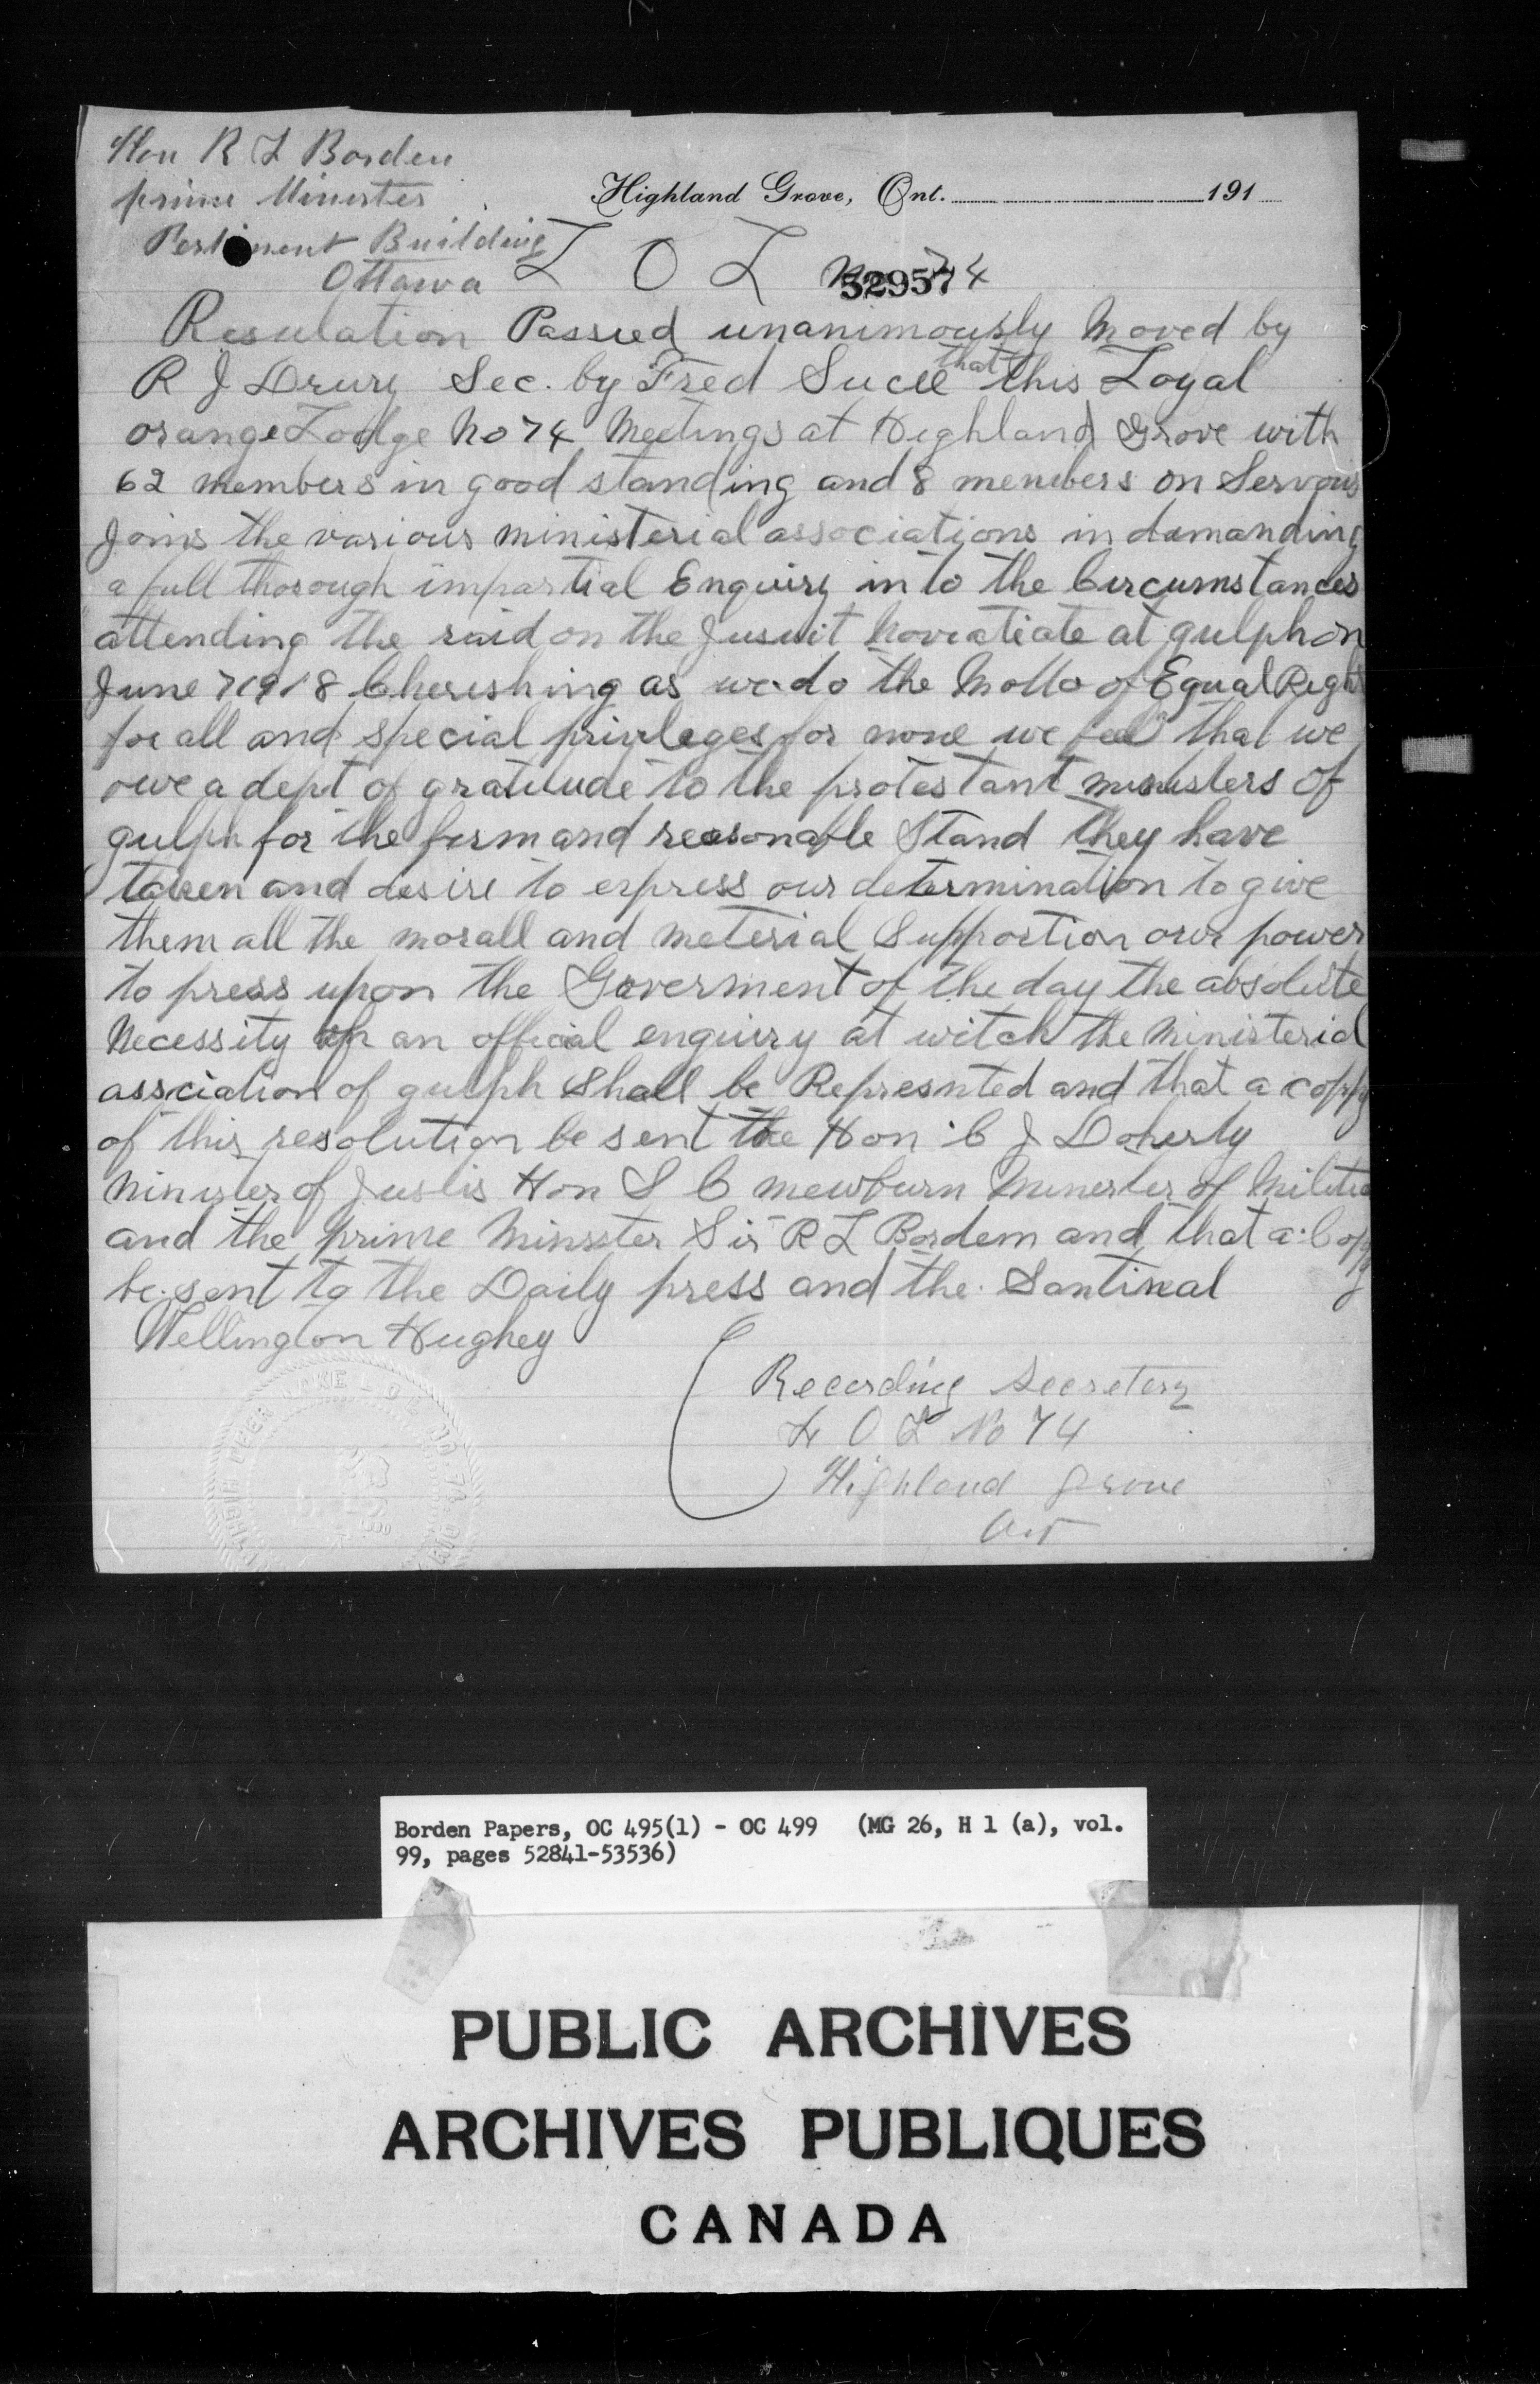 Hon R L Borden
prime Minester
Highland Grove, Ont. 191
Perliment Building
Ottawa
L O L No 74
52957
Resulation Passed unanimously Moved by
R J Drury Sec. by Fred that this Loyal
orange Lodge No 74 Meetings at Highland Grove with
62 members in good standing and 8 members on Servous
Joins the various ministerial associations in damanding
a full thorough impartial Enquiry in to the Circumstances
attending the raid on the Jusuit Noviatiate at gulph on
June 7 1918 Cherishing as we do the Motto of Equal Right
for all and special privleges for none we feel that we
owe a dept of gratitude to the protestant ministers of
gulph for the firm and reasonable Stand they have
taken and desire to express our determination to give
them all the morall and meterial Support in our power
to press upon the Goverment of the day the absolute
Necessity of an official enquiry at witch the Ministerial
assciation of gulph Shall be Represnted and that a coppy
of this resolution be sent the Hon C J Doherty
Minister of Juslis Hon S C mewburn Minester of Militia
and the prime Minsster Sir R L Bordem and that a Copy
be sent to the Daily press and the Santinal
Wellington Hughey
Recording Secretery
L O L No 74
Highland Grove
Ont
Borden Papers, OC 495(1) - OC 499 (MG 26, H 1 (a), vol.
99, pages 52841-53536)
PUBLIC ARCHIVES
ARCHIVES PUBLIQUES
CANADA